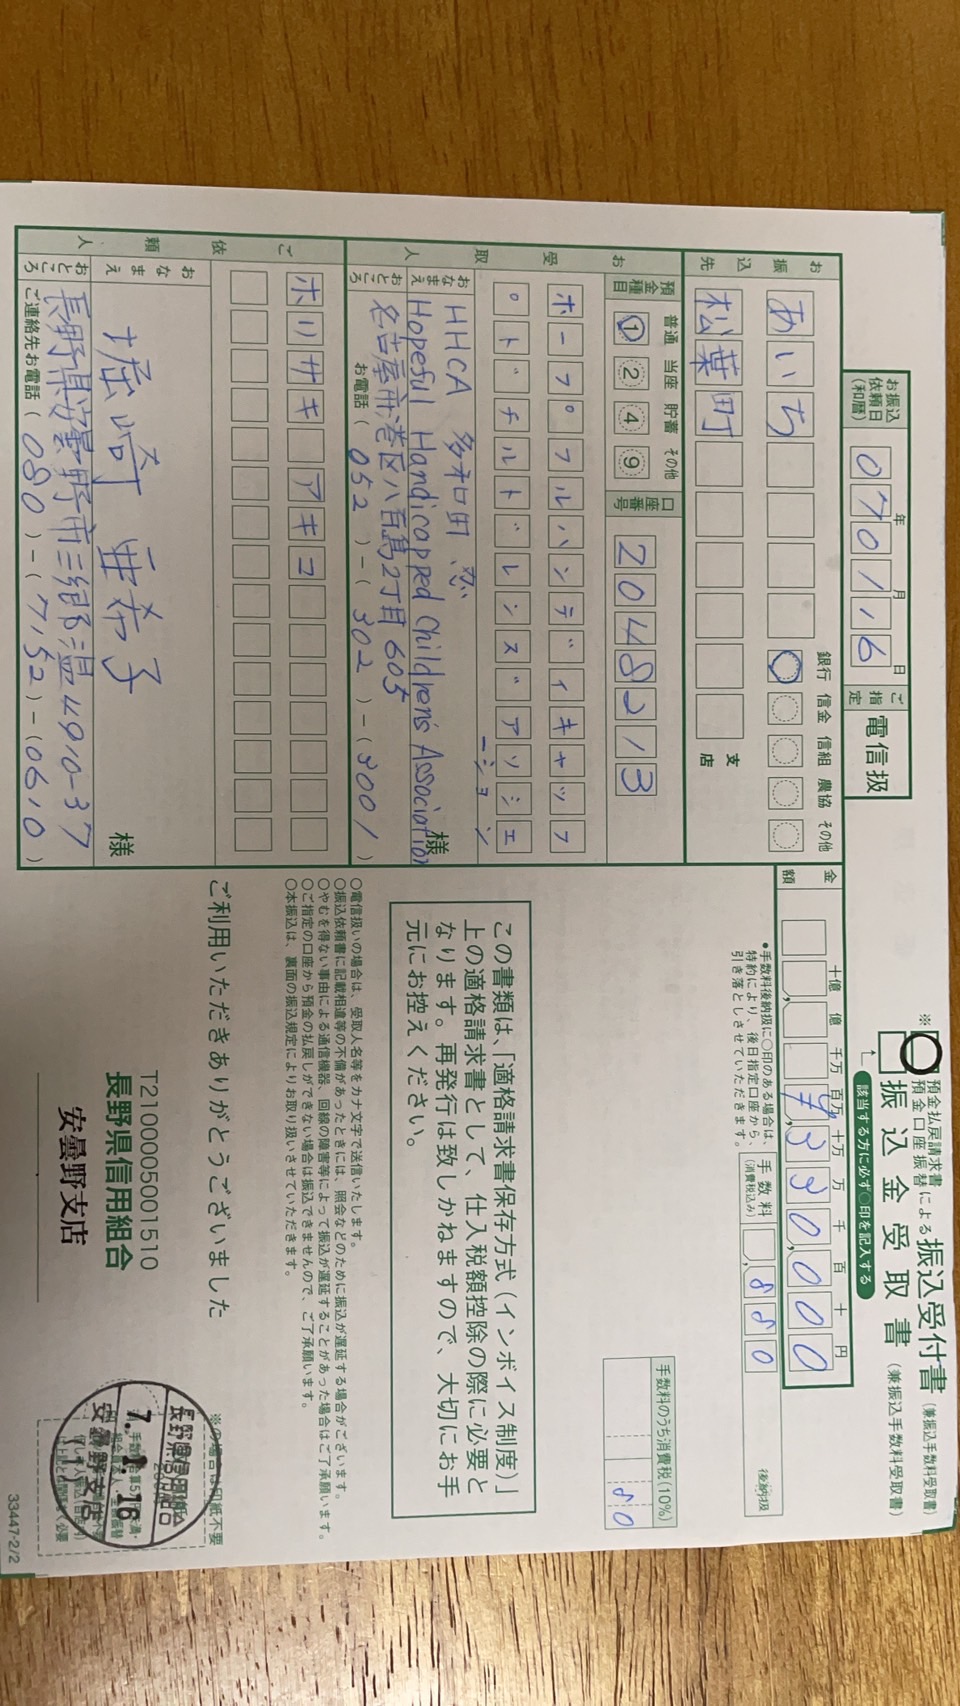 ※預金払戻請求書
預金口座振替 による振込受付書（兼振込手数料受取書）
振込金受取書（兼振込手数料受取書）
該当する方に必ず○印を記入する
お振込依頼日（和暦） 07年01月16日 ご指定 電信扱
お振込先 あいち 銀行 信金 信組 農協 その他
松葉町 支店
預金種目 普通 当座 貯蓄 その他
① ② ④ ⑨
口座番号 2048213
金額 十億 億 千万 百万 十万 万 千 百 十 円
●手数料後納扱に○印のある場合は、
特約により、後日指定口座から、
引き落としさせていただきます。
手数料（消費税込み） 880 後納扱
手数料のうち消費税（10%） 80
お受取人
ホープフルハンディキャップ
ドチルドレンズアソシエ
ーション
おなまえ HHCA 多和田 忍
Hopeful Handicapped Children's Association 様
おところ 名古屋市港区八百島2丁目605
お電話（ 052 ）－（ 302 ）－（ 3001 ）
ご依頼人
ホリサキ アキコ
おなまえ 堀崎 亜希子 様
おところ 長野県安曇野市三郷温4910-37
ご連絡先お電話（ 080 ）－（ 7152 ）－（ 0610 ）
この書類は、「適格請求書保存方式（インボイス制度）」
上の適格請求書として、仕入税額控除の際に必要と
なります。再発行は致しかねますので、大切にお手
元にお控えください。
○電信扱いの場合は、受取人名等をカナ文字で送信いたします。
○振込依頼書に記載相違等の不備があったときには、照会などのために振込が遅延する場合がございます。
○やむを得ない事由による通信機器、回線の障害等によって振込が遅延することがあった場合はご了承願います。
○ご指定の口座から預金の払戻しができない場合は振込できませんので、ご了承願います。
○本振込は、裏面の振込規定によりお取り扱いさせていただきます。
ご利用いただきありがとうございました
T2100005001510
長野県信用組合
安曇野支店
長野県信用組合
7. 1. 16
安曇野支店
33447-2/2